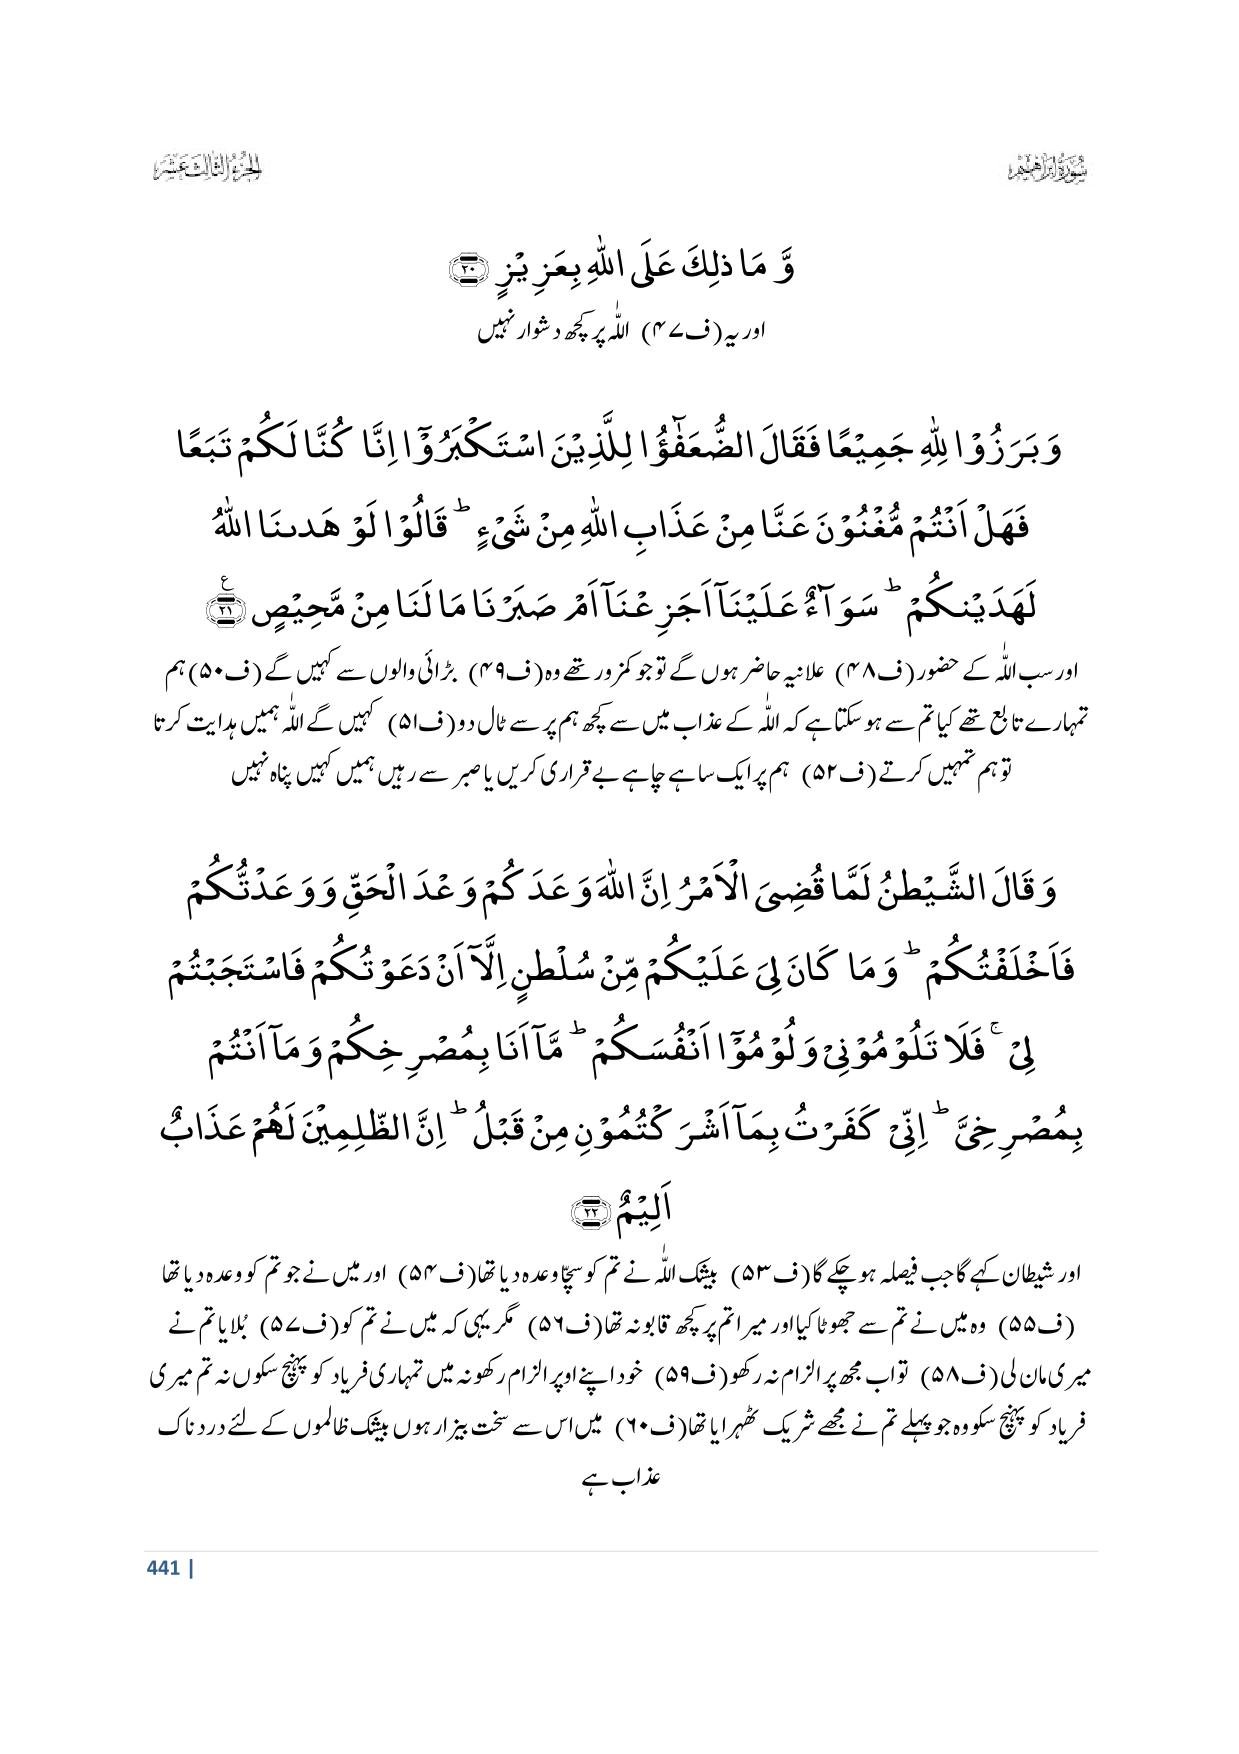 سُوْرَةُ اِبْرٰهِيْم
الجزء الثالث عشر
وَّ مَا ذٰلِكَ عَلَى اللّٰهِ بِعَزِيْزٍ ﴿۲۰﴾
اور یہ (ف۴۷) اللّٰہ پر کچھ دشوار نہیں
وَ بَرَزُوْا لِلّٰهِ جَمِيْعًا فَقَالَ الضُّعَفٰٓؤُا لِلَّذِيْنَ اسْتَكْبَرُوْۤا اِنَّا كُنَّا لَكُمْ تَبَعًا
فَهَلْ اَنْتُمْ مُّغْنُوْنَ عَنَّا مِنْ عَذَابِ اللّٰهِ مِنْ شَیْءٍ ؕ قَالُوْا لَوْ هَدٰىنَا اللّٰهُ
لَهَدَيْنٰكُمْ ؕ سَوَآءٌ عَلَيْنَاۤ اَجَزِعْنَاۤ اَمْ صَبَرْنَا مَا لَنَا مِنْ مَّحِيْصٍ ﴿۲۱﴾ ع
اور سب اللّٰہ کے حضور (ف۴۸) علانیہ حاضر ہوں گے تو جو کمزور تھے وہ (ف۴۹) بڑائی والوں سے کہیں گے (ف۵۰) ہم
تمہارے تابع تھے کیا تم سے ہو سکتا ہے کہ اللّٰہ کے عذاب میں سے کچھ ہم پر سے ٹال دو (ف۵۱) کہیں گے اللّٰہ ہمیں ہدایت کرتا
تو ہم تمہیں کرتے (ف۵۲) ہم پر ایک سا ہے چاہے بے قراری کریں یا صبر سے رہیں ہمیں کہیں پناہ نہیں
وَ قَالَ الشَّيْطٰنُ لَمَّا قُضِیَ الْاَمْرُ اِنَّ اللّٰهَ وَعَدَكُمْ وَعْدَ الْحَقِّ وَ وَعَدْتُّكُمْ
فَاَخْلَفْتُكُمْ ؕ وَ مَا كَانَ لِیَ عَلَيْكُمْ مِّنْ سُلْطٰنٍ اِلَّاۤ اَنْ دَعَوْتُكُمْ فَاسْتَجَبْتُمْ
لِیْ ۚ فَلَا تَلُوْمُوْنِیْ وَ لُوْمُوْۤا اَنْفُسَكُمْ ؕ مَّاۤ اَنَا بِمُصْرِخِكُمْ وَ مَاۤ اَنْتُمْ
بِمُصْرِخِیَّ ؕ اِنِّیْ كَفَرْتُ بِمَاۤ اَشْرَكْتُمُوْنِ مِنْ قَبْلُ ؕ اِنَّ الظّٰلِمِيْنَ لَهُمْ عَذَابٌ
اَلِيْمٌ ﴿۲۲﴾
اور شیطان کہے گا جب فیصلہ ہو چکے گا (ف۵۳) بیشک اللّٰہ نے تم کو سچّا وعدہ دیا تھا (ف۵۴) اور میں نے جو تم کو وعدہ دیا تھا
(ف۵۵) وہ میں نے تم سے جھوٹا کیا اور میرا تم پر کچھ قابو نہ تھا (ف۵۶) مگر یہی کہ میں نے تم کو (ف۵۷) بُلایا تم نے
میری مان لی (ف۵۸) تو اب مجھ پر الزام نہ رکھو (ف۵۹) خود اپنے اوپر الزام رکھو نہ میں تمہاری فریاد کو پہنچ سکوں نہ تم میری
فریاد کو پہنچ سکو وہ جو پہلے تم نے مجھے شریک ٹھہرایا تھا (ف۶۰) میں اس سے سخت بیزار ہوں بیشک ظالموں کے لئے دردناک
عذاب ہے
441 |